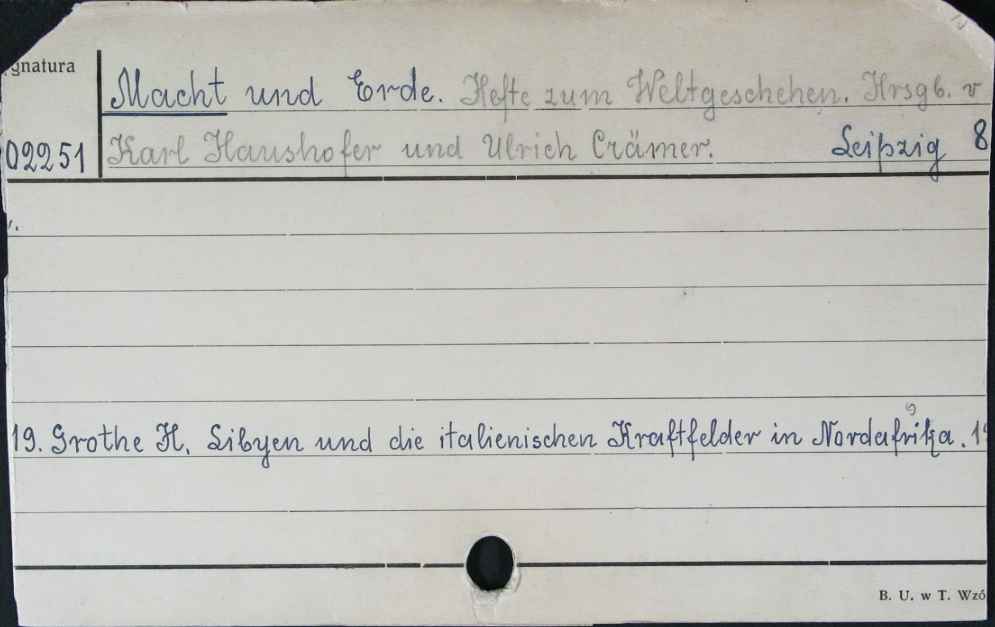 gnatura
Macht und Erde. Hefte zum Weltgeschehen. Hrsgb. v
02251 Karl Haushofer und Ulrich Crämer. Leipzig 8
19. Grothe H. Libyen und die italienischen Kraftfelder in Nordafrika. 19
B. U. w T. Wzó